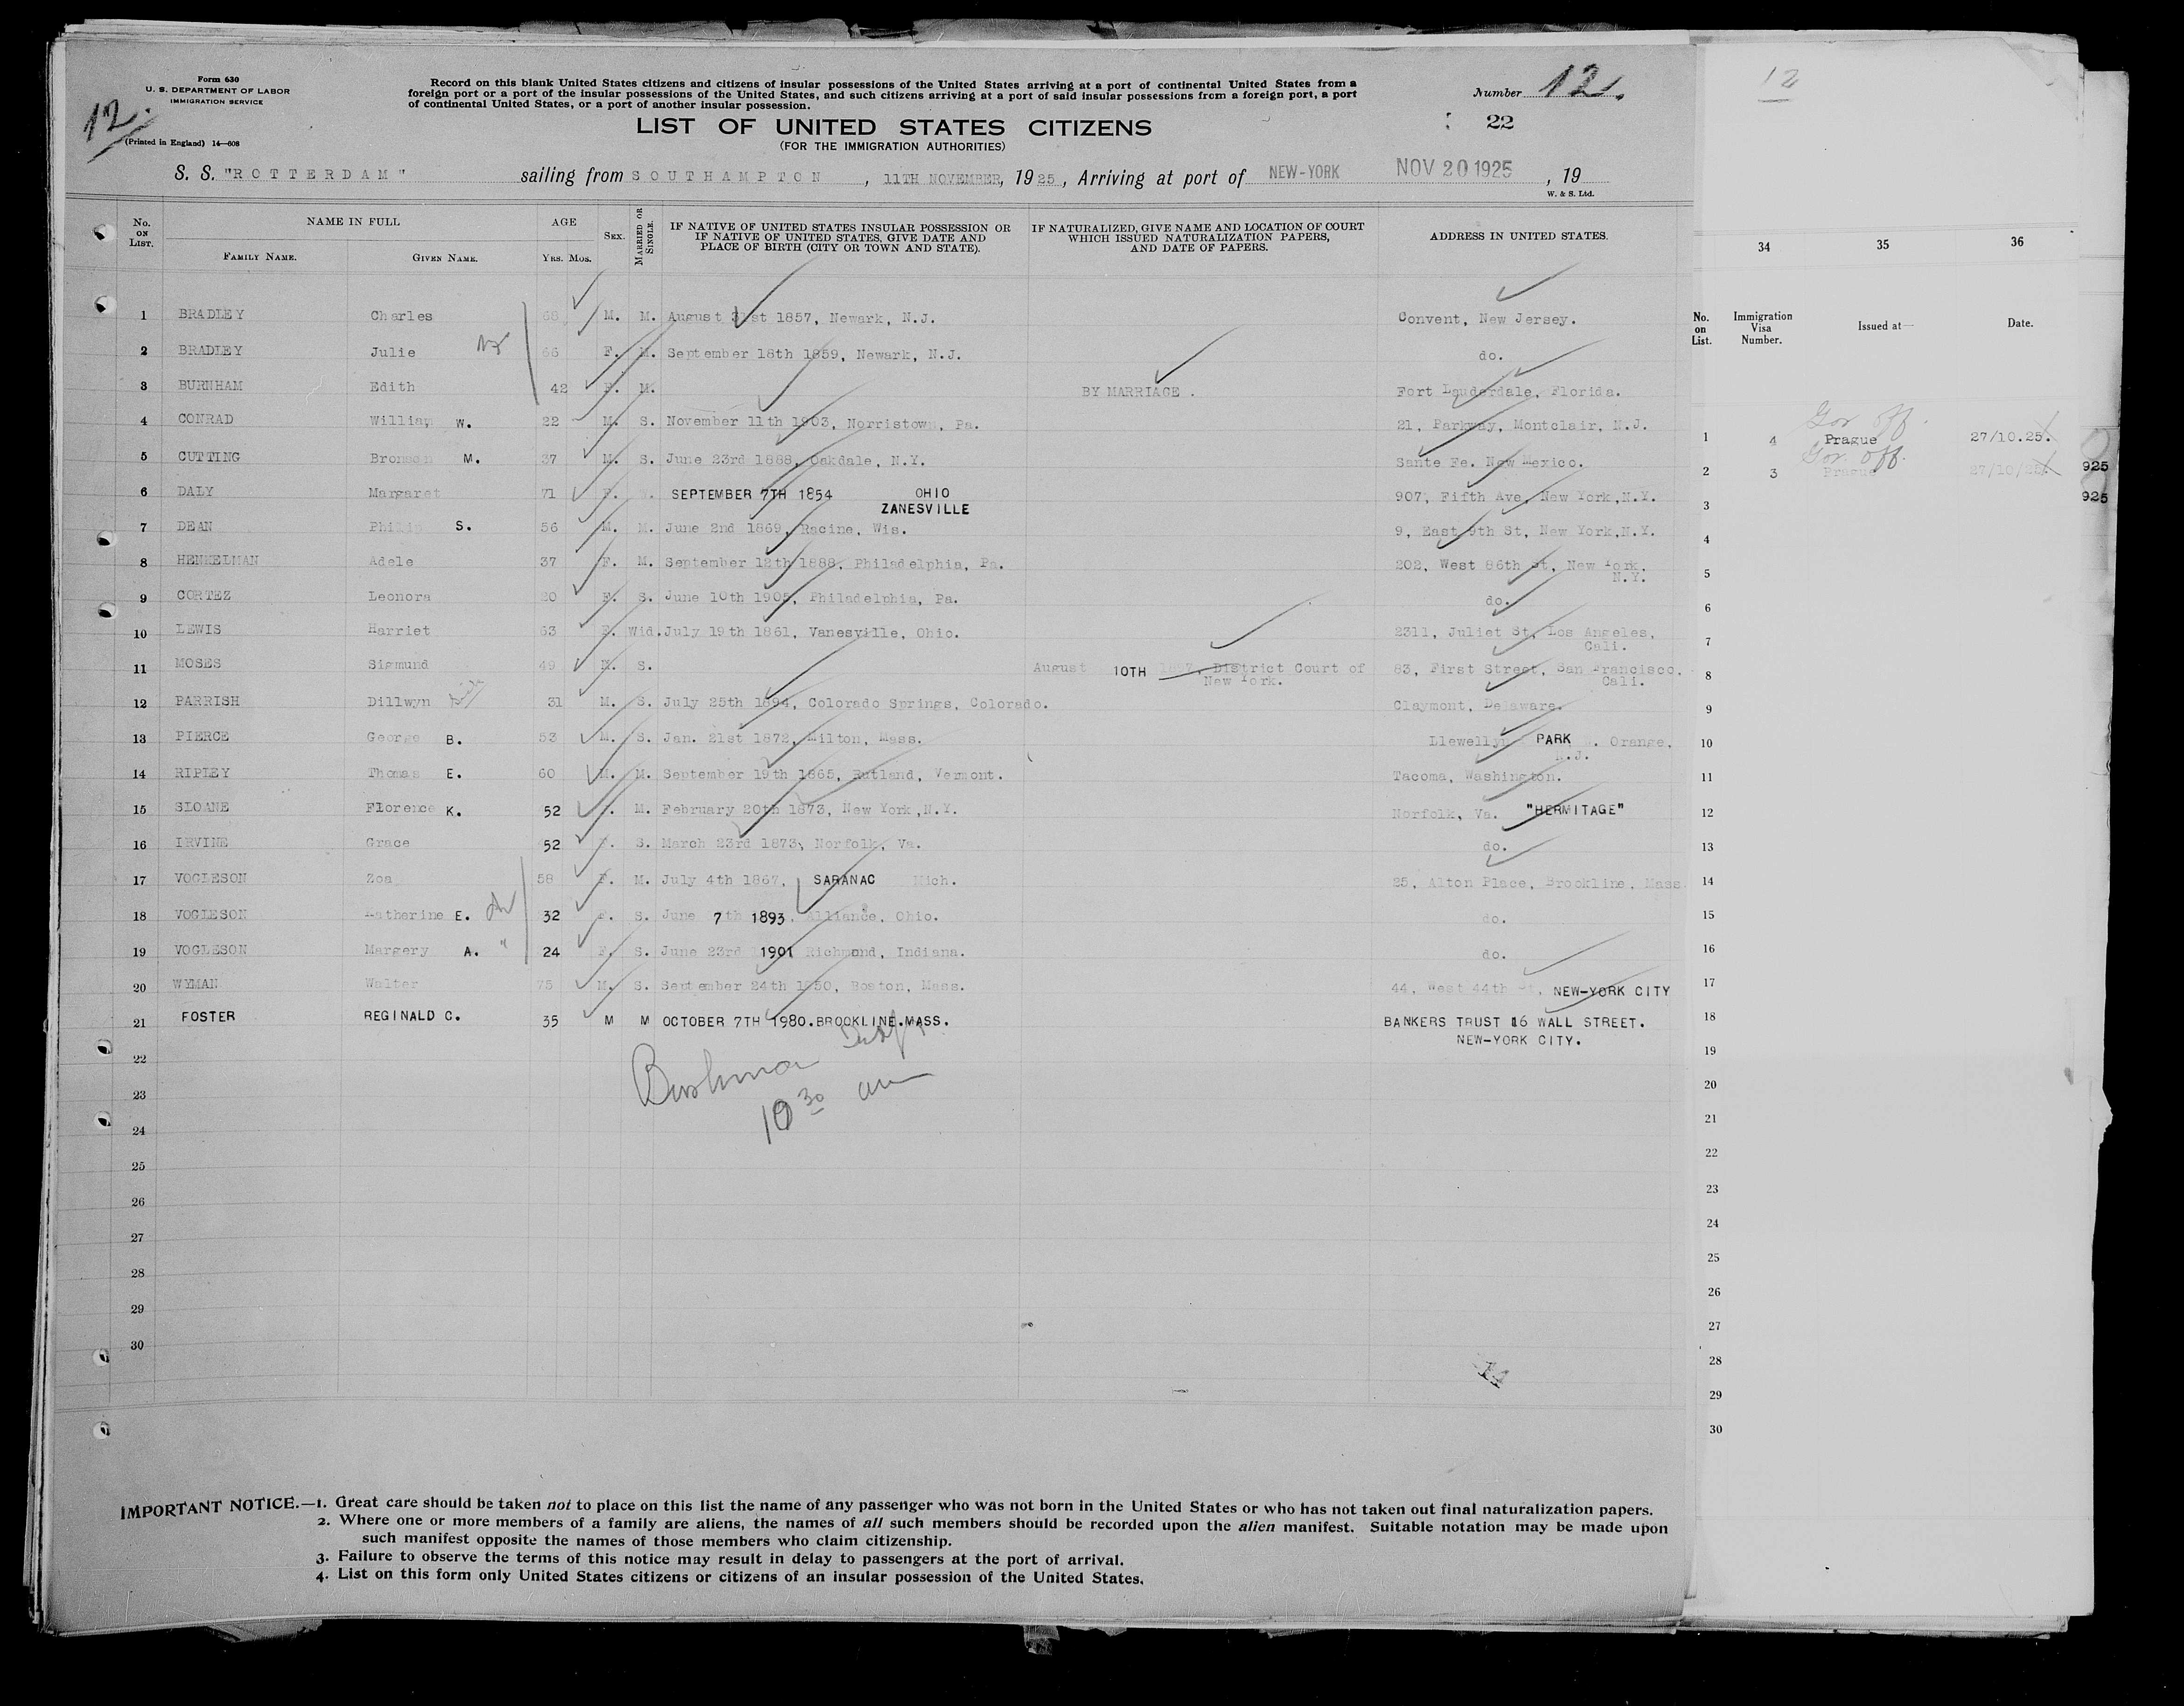 Form 630
U. S. DEPARTMENT OF LABOR
IMMIGRATION SERVICE
12.
(Printed in England) 14—608
Record on this blank United States citizens and citizens of insular possessions of the United States arriving at a port of continental United States from a
foreign port or a port of the insular possessions of the United States, and such citizens arriving at a port of said insular possessions from a foreign port, a port
of continental United States, or a port of another insular possession.
Number 12.
22
LIST OF UNITED STATES CITIZENS
(FOR THE IMMIGRATION AUTHORITIES)
S. S. "ROTTERDAM" sailing from SOUTHAMPTON, 11TH NOVEMBER, 1925, Arriving at port of NEW-YORK NOV 20 1925, 19
W. & S. Ltd.
No. ON LIST. NAME IN FULL AGE SEX. MARRIED OR SINGLE. IF NATIVE OF UNITED STATES INSULAR POSSESSION OR IF NATIVE OF UNITED STATES, GIVE DATE AND PLACE OF BIRTH (CITY OR TOWN AND STATE). IF NATURALIZED, GIVE NAME AND LOCATION OF COURT WHICH ISSUED NATURALIZATION PAPERS, AND DATE OF PAPERS. ADDRESS IN UNITED STATES.
FAMILY NAME. GIVEN NAME. YRS. MOS.
1 BRADLEY Charles 68 M. M. August 31st 1857, Newark, N.J. Convent, New Jersey.
2 BRADLEY Julie 66 F. M. September 18th 1859, Newark, N.J. do.
3 BURNHAM Edith 42 F. M. BY MARRIAGE. Fort Lauderdale, Florida.
4 CONRAD William W. 22 M. S. November 11th 1903, Norristown, Pa. 21, Parkway, Montclair, N.J.
5 CUTTING Bronson M. 37 M. S. June 23rd 1888, Oakdale, N.Y. Sante Fe. New Mexico.
6 DALY Margaret 71 F. SEPTEMBER 7TH 1854 OHIO 907, Fifth Ave, New York,N.Y.
ZANESVILLE
7 DEAN Philip S. 56 M. M. June 2nd 1869, Racine, Wis. 9, East 9th St, New York,N.Y.
8 HENKELMAN Adele 37 F. M. September 12th 1888, Philadelphia, Pa. 202, West 86th St, New York,
N.Y.
9 CORTEZ Leonora 20 F. S. June 10th 1905, Philadelphia, Pa. do.
10 LEWIS Harriet 63 F. Wid. July 19th 1861, Vanesville, Ohio. 2311, Juliet St, Los Angeles,
Cali.
11 MOSES Sigmund 49 M. S. August 10TH 1897, District Court of 83, First Street, San Francisco.
New York. Cali.
12 PARRISH Dillwyn 31 M. S. July 25th 1894, Colorado Springs, Colorado. Claymont, Delaware.
13 PIERCE George B. 53 M. S. Jan. 21st 1872, Milton, Mass. Llewellyn PARK . Orange,
N.J.
14 RIPLEY Thomas E. 60 M. M. September 19th 1865, Rutland, Vermont. Tacoma, Washington.
15 SLOANE Florence K. 52 F. M. February 20th 1873, New York,N.Y. Norfolk, Va. "HERMITAGE"
16 IRVINE Grace 52 F. S. March 23rd 1873, Norfolk, Va. do.
17 VOGLESON Zoa 58 F. M. July 4th 1867, SARANAC Mich. 25, Alton Place, Brookline, Mass
18 VOGLESON Katherine E. 32 F. S. June 7th 1893. Alliance, Ohio. do.
19 VOGLESON Margery A. 24 F. S. June 23rd 1901 Richmond, Indiana. do.
20 WYMAN Walter 75 M. S. September 24th 1850, Boston, Mass. 44, West 44th St, NEW-YORK CITY
21 FOSTER REGINALD C. 35 M M OCTOBER 7TH 1980.BROOKLINE.MASS. BANKERS TRUST 16 WALL STREET.
NEW-YORK CITY.
22
23
10 30 am
24
25
26
27
28
29
30
IMPORTANT NOTICE.—1. Great care should be taken not to place on this list the name of any passenger who was not born in the United States or who has not taken out final naturalization papers.
2. Where one or more members of a family are aliens, the names of all such members should be recorded upon the alien manifest. Suitable notation may be made upon
such manifest opposite the names of those members who claim citizenship.
3. Failure to observe the terms of this notice may result in delay to passengers at the port of arrival.
4. List on this form only United States citizens or citizens of an insular possession of the United States.
12
34 35 36
No. on List. Immigration Visa Number. Issued at— Date.
Gov. off.
1 4 Prague 27/10.25.
Gov. off.
2 3 Prague 27/10/25. 925
3 925
4
5
6
7
8
9
10
11
12
13
14
15
16
17
18
19
20
21
22
23
24
25
26
27
28
29
30